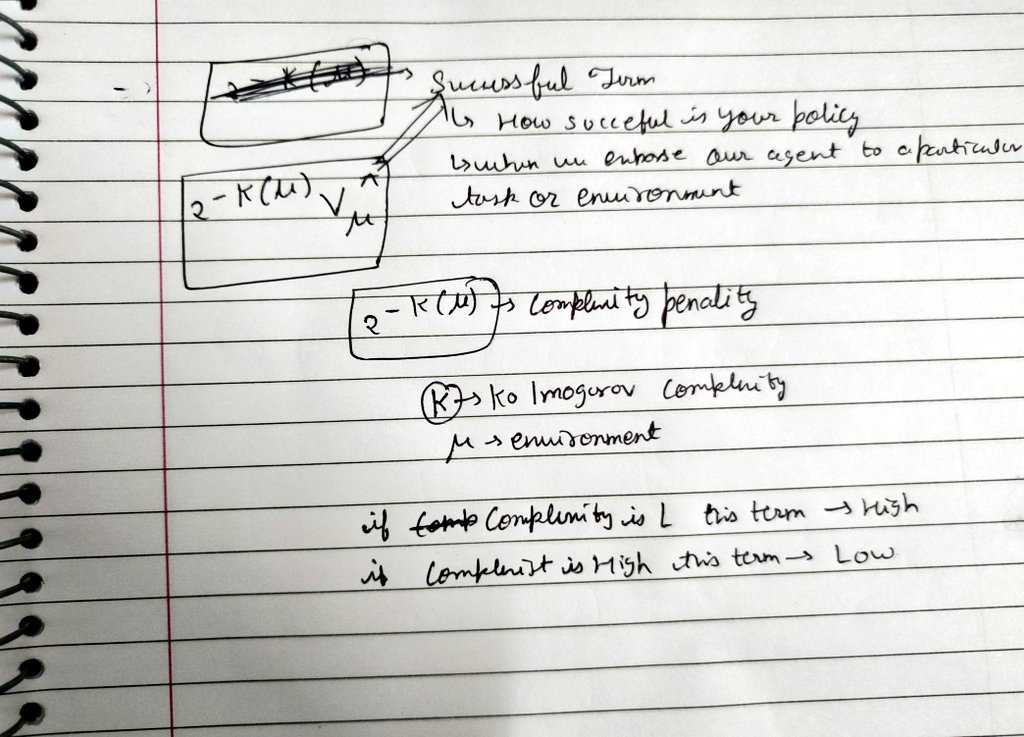 2 - K(μ) → Sucessful Term
↳ How succeful is your policy
↳ when we enpose our agent to a particular
task or environment
2 - K(μ) V ^ μ
2 - K(μ) → Complenity penality
K → Kolmogorov complenity
μ → environment
if Comp Complenity is L this term → High
if is High this term → Low